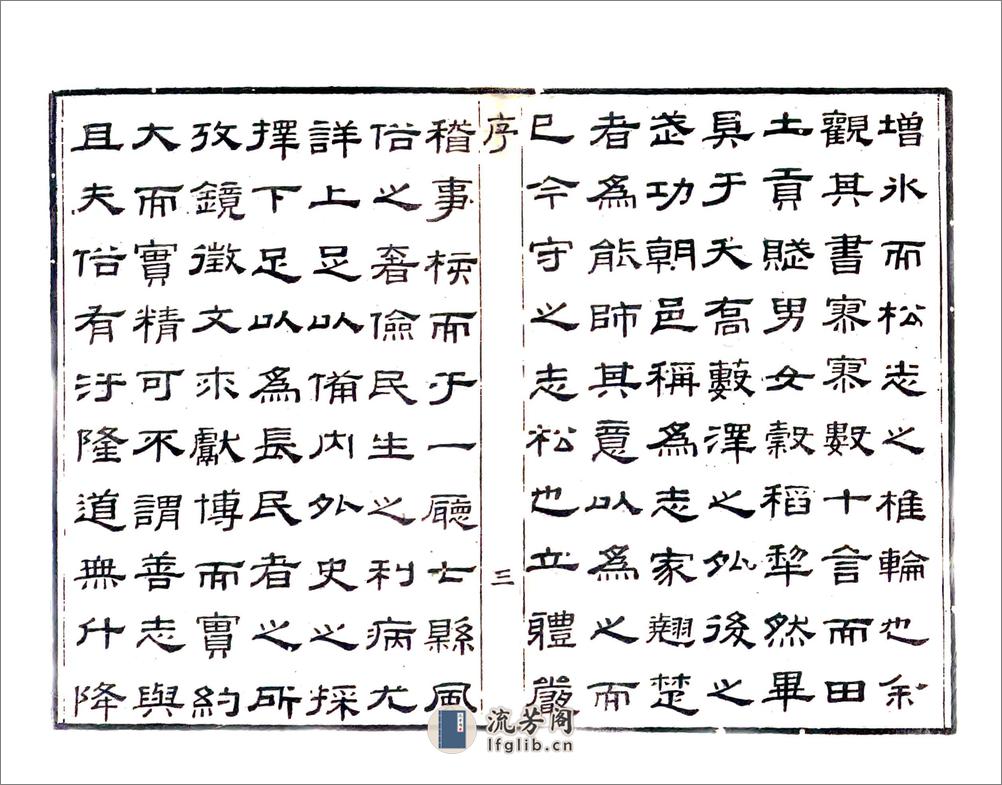 增氷而松志之椎輪也余
觀其書寥寥數十言而田
土貢賦男女穀稻犂然畢
具于天高藪澤之外後之
武功朝邑稱爲志家翹楚
者爲能師其意以爲之而
已今守之志松也立體嚴
序
三
稽事核而于一廳七縣風
俗之奢儉民生之利病尤
詳上足以備内外史之採
擇下足以爲長民者之所
攷鏡徵文求獻博而實約
大而實精可不謂善志與
且夫俗有汙隆道無升降
流芳阁
lfglib.cn